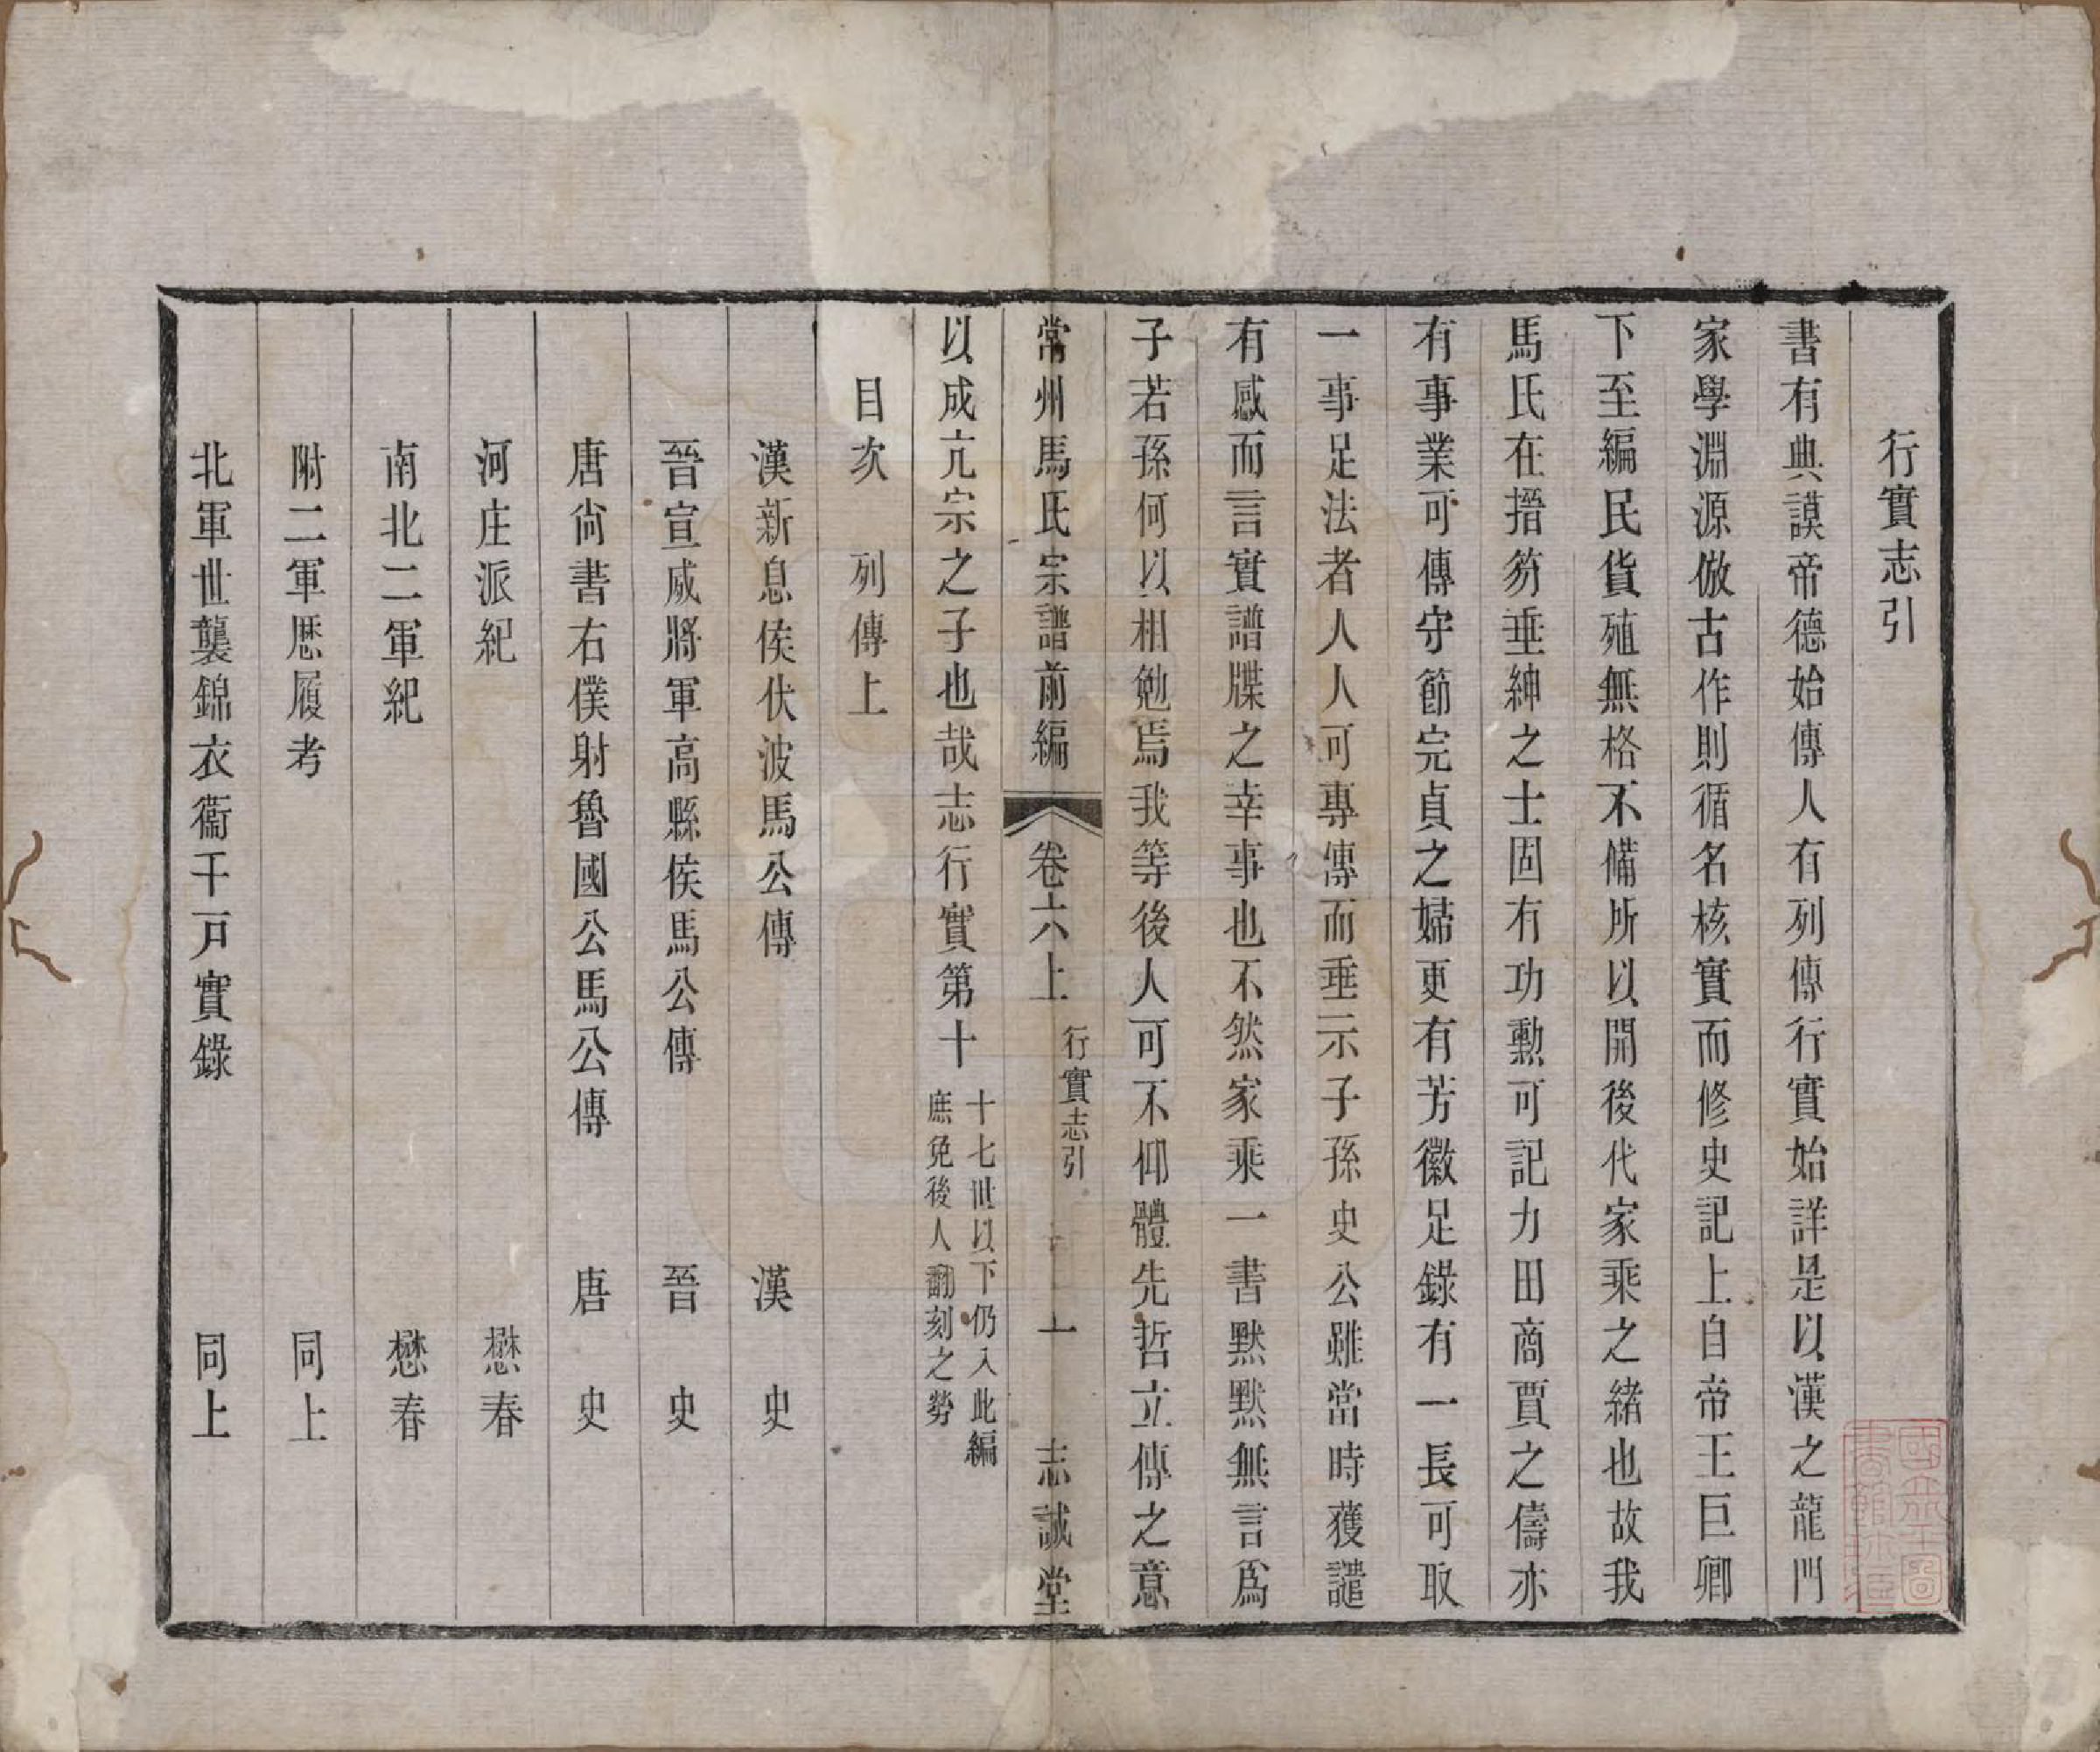 行實志引
書有典謨帝德始傳人有列傳行實始詳是以漢之龍門
家學淵源倣古作則循名核實而修史記上自帝王巨卿
下至編民貨殖無格不備所以開後代家乘之緒也故我
馬氏在搢笏垂紳之士固有功勳可記力田商賈之儔亦
有事業可傳守節完貞之婦更有芳徽足錄有一長可取
一事足法者人人可專傳而垂示子孫史公雖當時獲譴
有感而言實譜牒之幸事也不然家乘一書默默無言爲
子若孫何以相勉焉我等後人可不仰體先哲立傳之意
常州馬氏宗譜前編 卷六上 行實志引 一 志誠堂
以成亢宗之子也哉志行實第十 十七世以下仍入此編
庶免後人翻刻之勞
目次 列傳上
漢新息侯伏波馬公傳 漢史
晉宣威將軍高縣侯馬公傳 晉史
唐尙書右僕射魯國公馬公傳 唐史
河庄派紀 懋春
南北二軍紀 懋春
附二軍歷履考 同上
北軍世襲錦衣衞千戸實錄 同上
國立北平圖書館珍藏